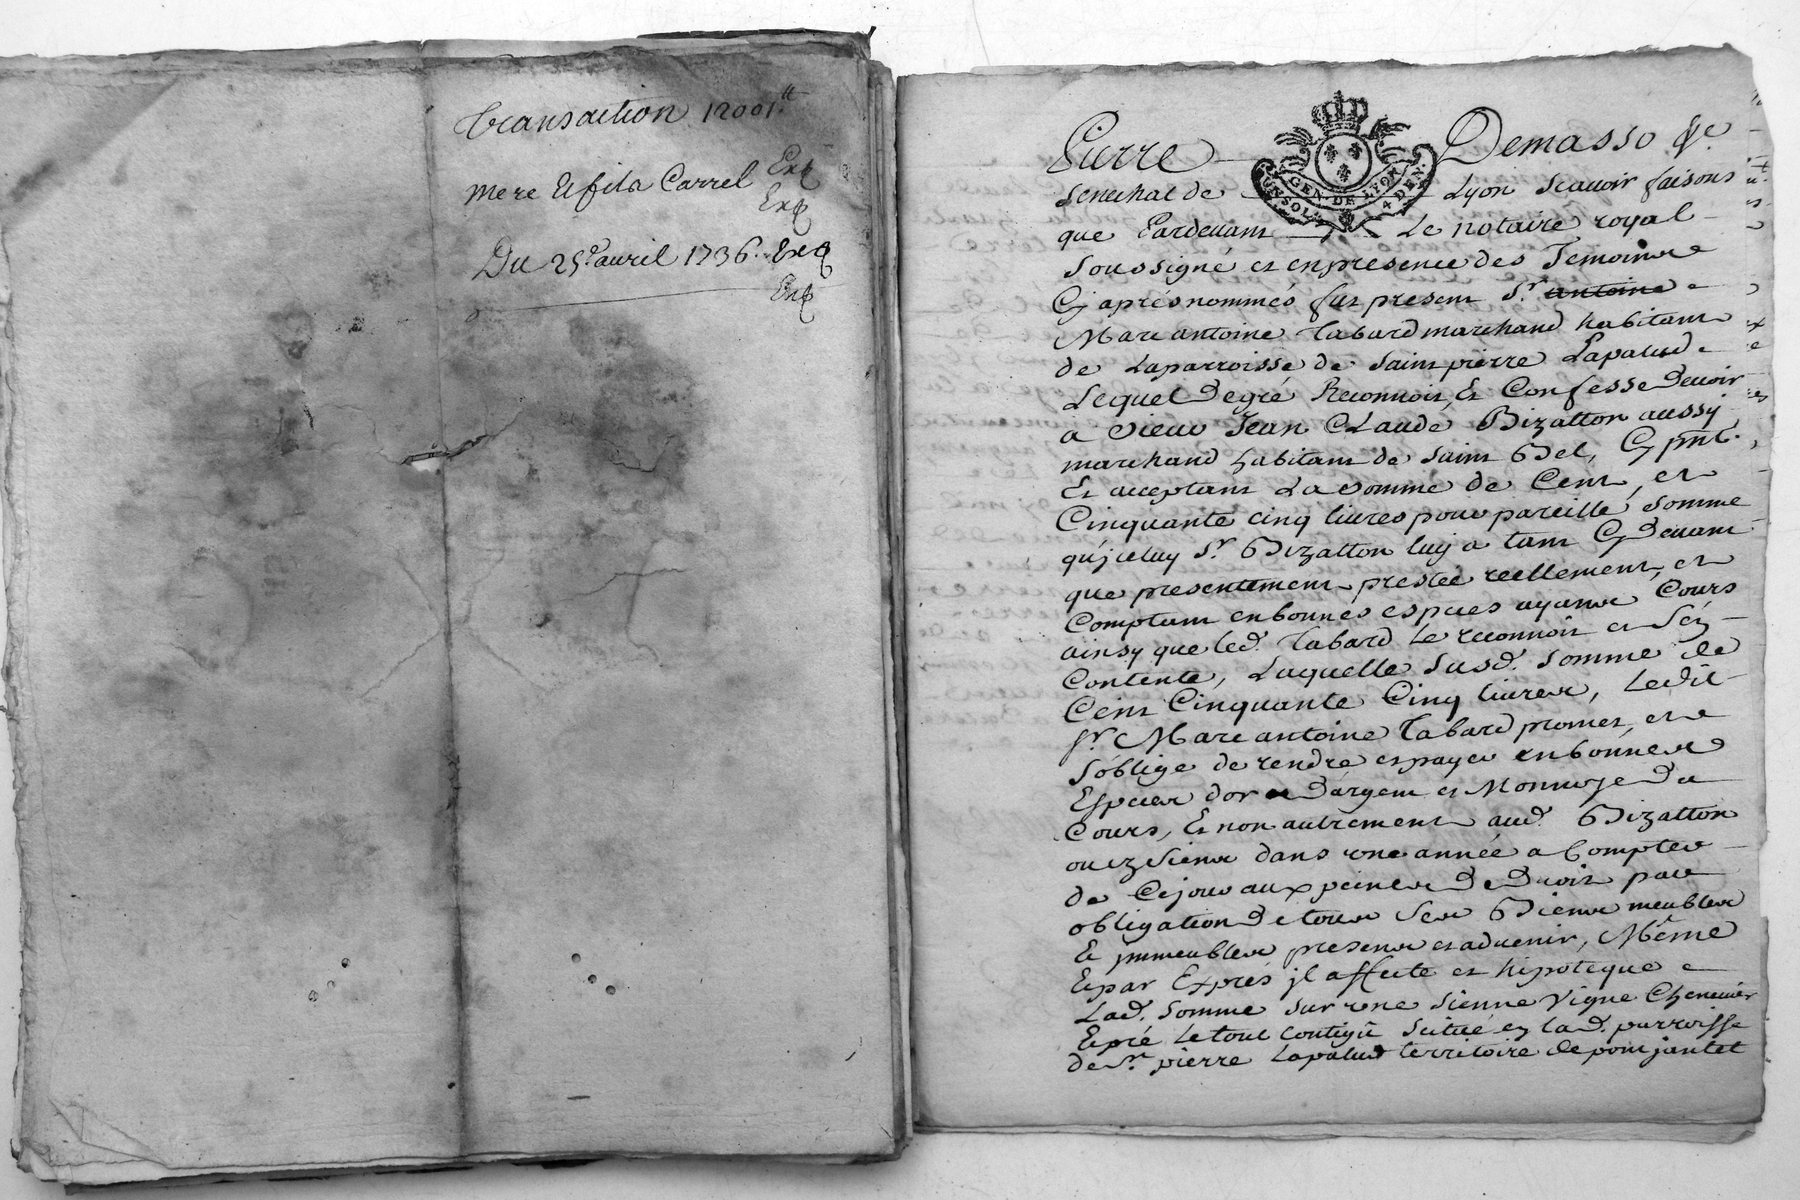 transaction 12001.tt
mere et fils Carrel Exp
Exp
Du 25e. avril 1736. Exp
Exp
Pierre Demasso &c.
GEN. DE LYON
4 DEN.
senechal de Lyon scavoir faisons
que Pardevant Le notaire royal
soussigné et en presence des Temoins
Cy aprés nommés fut present Sr. antoine
Marc antoine Tabard marchand habitant
de Laparroisse de Saint pierre Lapalud
Lequel De gré Reconnoit Et Confesse Devoir
a Sieur Jean Claude Bizalton aussy
marchand habitant de saint Bel, Cy pnt.
Et acceptant La somme de Cent, et
Cinquante cinq livres pour pareille somme
qu'jceluy Sr. Bizalton luy a tant Cy Devant
que presentement prestée reellement, et
Comptant en bonnes especes ayants Cours
ainsy que led. Tabard Le reconnoit et s'en
Contente, Laquelle susd. somme de
Cent Cinquante Cinq livres, Ledit
Sr. Marc antoine Tabard promet, et
s'oblige de rendre et payer en bonnes
Especes d'or D'argent et Monnoye Du
Cours, Et non autrement aud. Bizalton
ou ez siens dans une année a Compter
de Cejour aux peines De Droit par
obligation De tous ses Biens meubles
Et jmmeubles presens et advenir, Même
Et par Exprés jl affecte et hipoteque
Lad. somme sur une sienne vigne Chenevier
Et pré Le tout contigu scitué en lad. parroisse
de St. pierre Lapalud territoire de pont jantet